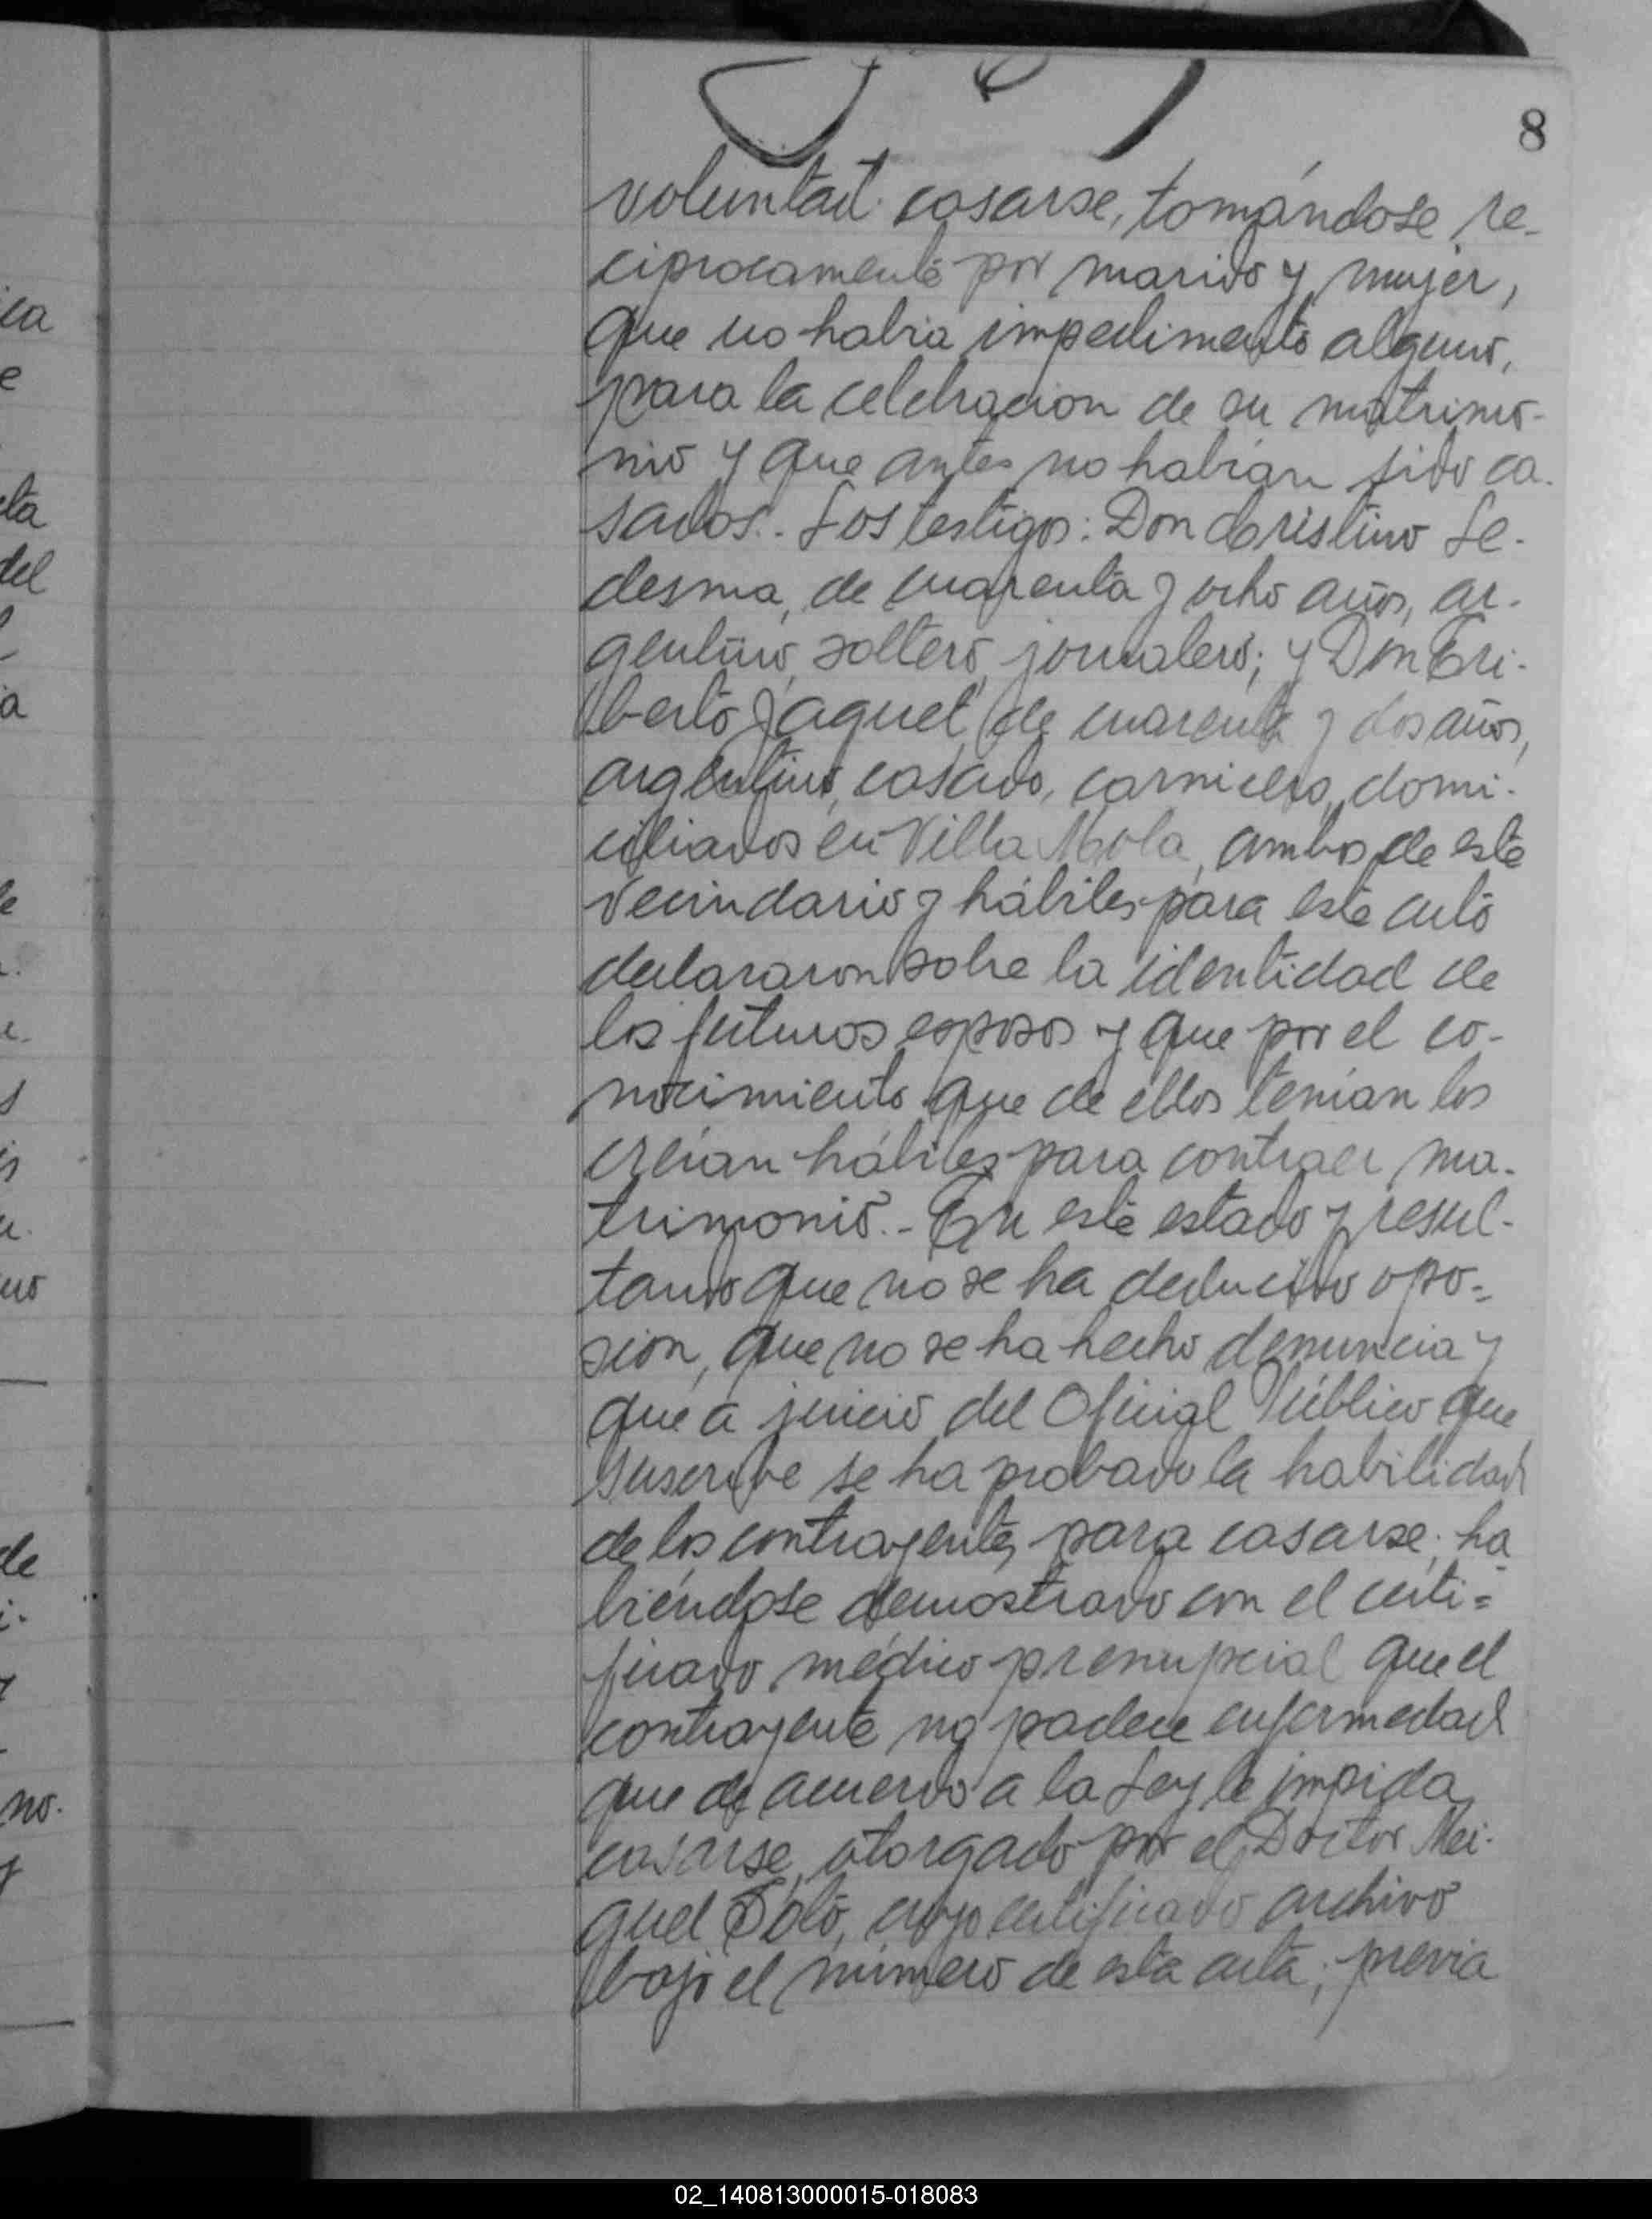 8
voluntad casarse, tomándose re-
ciprocamente por marido y mujer,
que no habia impedimento alguno,
para la celebracion de su matrimo-
nio y que antes no habian sido ca-
sados.- Los testigos: Don Le-
desma, de cuarenta y ocho años, ar-
gentino, soltero, jornalero; y Don Eri-
berto Jaquet, de cuarenta y dos años,
argentino, casado, carnicero, domi-
ciliados en Villa Abola, ambos de este
vecindario y hábiles para este acto
declararon sobre la identidad de
los futuros esposos y que por el co-
nocimiento que de ellos tenian los
creian hábiles para contraer ma-
trimonio.- En este estado y resul-
tando que no se ha deducido opo-
sion, que no se ha hecho denuncia y
que a juicio del Oficial Público que
suscribe se ha probado la habilidad
de los contrayentes para casarse; ha
biéndose demostrado con el certi-
ficado médico prenupcial que el
contrayente no padece enfermedad
que de acuerdo a la Ley le impida
casarse, otorgado por el Doctor Mi-
guel Soto, cuyo certificado archivo
bajo el número de esta acta; previa
ica
e
eta
del
a
le
s
us
de
i.
no.
02_140813000015-018083